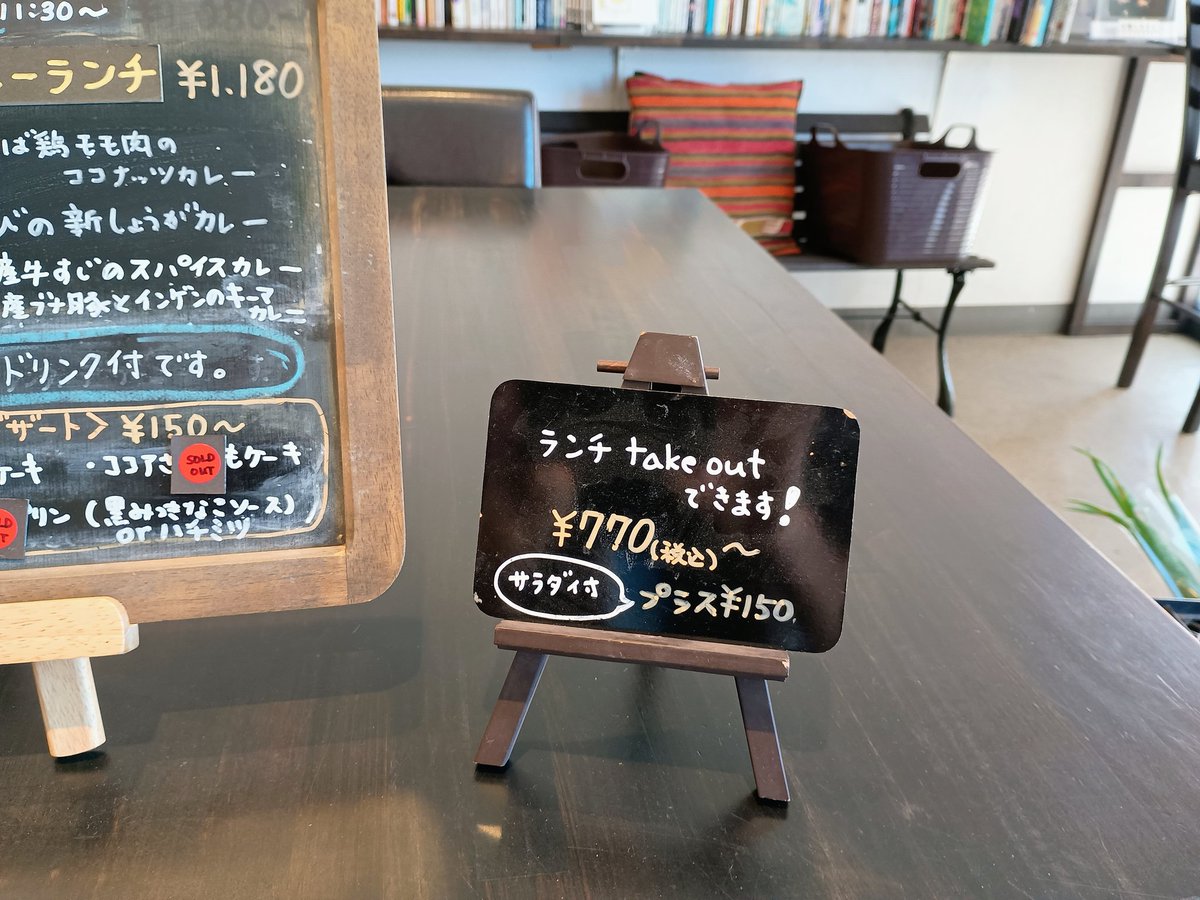 11:30～
ーランチ ¥1.180
ば鶏モモ肉の
ココナッツカレー
びの新しょうがカレー
産牛すじのスパイスカレー
産ブナ豚とインゲンのキーマ
カレー
ドリンク付です。
ザート> ¥150～
ケーキ ・ココアさ もケーキ
SOLD
OUT
リン (黒みつきなこソース)
or ハチミツ
ランチ take out
できます!
¥770(税込)～
サラダ付 プラス¥150